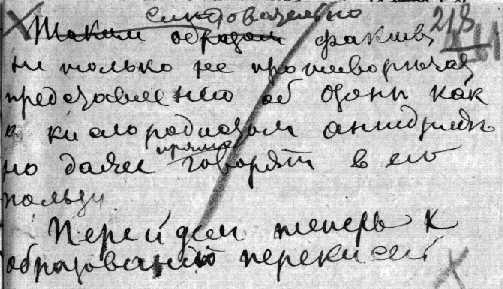 следовательно
Таким образом факты 218
не только не противоречат
представлению об озоне как
о кислородистом ангидриде
но даже прямо говорят в его
пользу
Перейдем теперь к
образованию перекисей